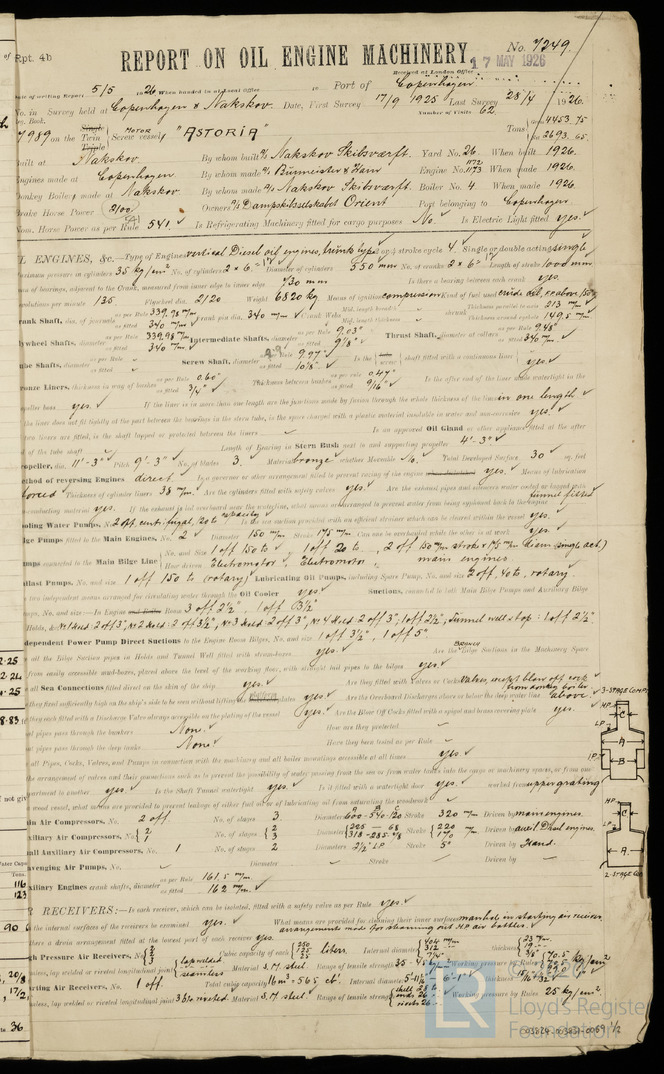 Rpt. 4b
REPORT ON OIL ENGINE MACHINERY.
No. 7249.
17 MAY 1926
Received at London Office
Date of writing Report 5/5 1926 When handed in at Local Office Port of Copenhagen
No. in Survey held at Copenhagen & Nakskov. Date, First Survey 17/9 1925 Last Survey 28/4 1926.
Reg. Book. Number of Visits 62
7989 on the Single Twin Triple Screw vessel MOTOR "ASTORIA" Tons Gross 4453.75 Net 2693.65
Built at Nakskov By whom built A/S Nakskov Skibsværft. Yard No. 26. When built 1926.
Engines made at Copenhagen By whom made A/S Burmeister & Wain Engine No. 1172 1173 When made 1926.
Donkey Boiler made at Nakskov By whom made A/S Nakskov Skibsværft. Boiler No. 4. When made 1926.
Brake Horse Power 2100 Owners A/S Dampskibsselskabet Orient Port belonging to Copenhagen
Nom. Horse Power as per Rule 541. Is Refrigerating Machinery fitted for cargo purposes No. Is Electric Light fitted yes.
OIL ENGINES, &c.—Type of Engines vertical Diesel oil engines, trunk type 2 or 4 stroke cycle 4. Single or double acting single
Maximum pressure in cylinders 35 kg/cm² No. of cylinders 2 × 6 = 12 Diameter of cylinders 550 mm No. of cranks 2 × 6 = 12 Length of stroke 1000 mm
of bearings, adjacent to the Crank, measured from inner edge to inner edge 730 mm Is there a bearing between each crank yes.
Revolutions per minute 135 Flywheel dia. 2120 Weight 6820 kg Means of ignition compression Kind of fuel used crude oil, f.p. above 150°F
Crank Shaft, dia. of journals as per Rule 339.98 mm as fitted 340 mm Crank pin dia. 340 mm Crank Webs Mid. length breadth Mid. length thickness shrunk Thickness parallel to axis 213 mm Thickness around eyehole 149.5 mm
Flywheel Shafts, diameter as per Rule 339.98 mm as fitted 340 mm Intermediate Shafts, diameter as per Rule 9.03" as fitted 9 1/8" Thrust Shaft, diameter at collars as per Rule 9.48" as fitted 340 mm
Tube Shafts, diameter as per Rule as fitted Screw Shaft, diameter as per Rule 9.97" as fitted 10 1/8" Is the shaft fitted with a continuous liner yes.
Bronze Liners, thickness in way of bushes as per Rule 0.60" as fitted 3/4" Thickness between bushes as per Rule 0.47" as fitted 9/16" Is the after end of the liner made watertight in the
propeller boss yes. If the liner is in more than one length are the junctions made by fusion through the whole thickness of the liner in one length
If the liner does not fit tightly at the part between the bearings in the stern tube, is the space charged with a plastic material insoluble in water and non-corrosive yes.
If two liners are fitted, is the shaft lapped or protected between the liners — Is an approved Oil Gland or other appliance fitted at the after
end of the tube shaft Length of Bearing in Stern Bush next to and supporting propeller 4'-3"
Propeller, dia. 11'-3" Pitch 9'-3" No. of blades 3. Material bronze whether Moveable No. Total Developed Surface 30 sq. feet
Method of reversing Engines direct Is a governor or other arrangement fitted to prevent racing of the engine yes. Means of lubrication
forced Thickness of cylinder liners 38 mm. Are the cylinders fitted with safety valves yes. Are the exhaust pipes and silencers water cooled or lagged with
non-conducting material yes. If the exhaust is led overboard near the waterline, what means are arranged to prevent water from being syphoned back to the engine funnel fitted
Cooling Water Pumps, No. 2 off centrifugal, 120 to capacity Is the sea suction provided with an efficient strainer which can be cleared within the vessel yes.
Bilge Pumps fitted to the Main Engines, No. 2 Diameter 150 mm Stroke 175 mm Can one be overhauled while the other is at work yes.
Pumps connected to the Main Bilge Line No. and Size 1 off 150 to, 1 off 20 to, 2 off 150 mm stroke × 175 mm diam (single act.) How driven Electromotor, Electromotor main engines.
Ballast Pumps, No. and size 1 off 150 to (rotary) Lubricating Oil Pumps, including Spare Pump, No. and size 2 off, 40 to, rotary
Are two independent means arranged for circulating water through the Oil Cooler yes. Suctions, connected to both Main Bilge Pumps and Auxiliary Bilge
Pumps, No. and size:—In Engine Room 3 off 2½", 1 off 3½"
In Holds, &c. No 1 hold: 2 off 3", No 2 hold: 2 off 3½", No 3 hold: 2 off 3", No 4 hold: 2 off 3", 1 off 2½", Tunnel well stop: 1 off 2½".
Independent Power Pump Direct Suctions to the Engine Room Bilges, No. and size 1 off 3½", 1 off 5"
Are all the Bilge Suction pipes in Holds and Tunnel Well fitted with strum-boxes yes. Are the Bilge Suctions in the Machinery Space
led from easily accessible mud-boxes, placed above the level of the working floor, with straight tail pipes to the bilges yes.
Are all Sea Connections fitted direct on the skin of the ship yes. Are they fitted with Valves or Cocks valves, except blow off cock from donkey boiler
Are they fixed sufficiently high on the ship's side to be seen without lifting the plates yes. Are the Overboard Discharges above or below the deep water line above.
Are they each fitted with a Discharge Valve always accessible on the plating of the vessel yes. Are the Blow Off Cocks fitted with a spigot and brass covering plate yes.
What pipes pass through the bunkers None. How are they protected —
What pipes pass through the deep tanks None. Have they been tested as per Rule —
Are all Pipes, Cocks, Valves, and Pumps in connection with the machinery and all boiler mountings accessible at all times yes
Is the arrangement of valves and their connections such as to prevent the possibility of water passing from the sea or from water tanks into the cargo or machinery spaces, or from one
compartment to another yes. Is the Shaft Tunnel watertight yes. Is it fitted with a watertight door yes. worked from upper grating
If a wood vessel, what means are provided to prevent leakage of either fuel oil or of lubricating oil from saturating the woodwork —
Main Air Compressors, No. 2 off. No. of stages 3. Diameters 600 - 540 - 120 Stroke 320 mm Driven by main engines.
Auxiliary Air Compressors, No. 2 1 No. of stages 2 3 Stroke 220 170 mm Driven by auxil Diesel engines.
Small Auxiliary Air Compressors, No. 1 No. of stages 2 Diameters 2½" LP Stroke 5" Driven by Hand.
Scavenging Air Pumps, No. — Diameter — Stroke — Driven by —
Auxiliary Engines crank shafts, diameter as per Rule 161.5 mm as fitted 162 mm.
AIR RECEIVERS:—Is each receiver, which can be isolated, fitted with a safety valve as per Rule yes.
Can the internal surfaces of the receivers be examined yes. What means are provided for cleaning their inner surfaces manhole in starting air receiver, arrangement made for steaming out HP air bottles.
Is there a drain arrangement fitted at the lowest part of each receiver yes.
High Pressure Air Receivers, No. Cubic capacity of each 250 125 25 liters. Internal diameter 406 mm 312 " thickness 23 mm
Seamless, lap welded or riveted longitudinal joint lapwelded seamless Material S.M. steel. Range of tensile strength 35 - 4 kg/cm²
Starting Air Receivers, No. 1 off. Total cubic capacity 16 m³ - 565 cb' Internal diameter 5'-11½"
Seamless, lap welded or riveted longitudinal joint riveted. Material S.M. steel. Range of tensile strength Working pressure by Rules 25 kg/cm².
3-STAGE COMP.
H.P.
L.P.
C
A
B
I.P.
H.P.
L.P.
C
A.
2-STAGE
116
123
36
© 2020
LR
Lloyd's Register
Foundation
003824-003831-0059 1/2